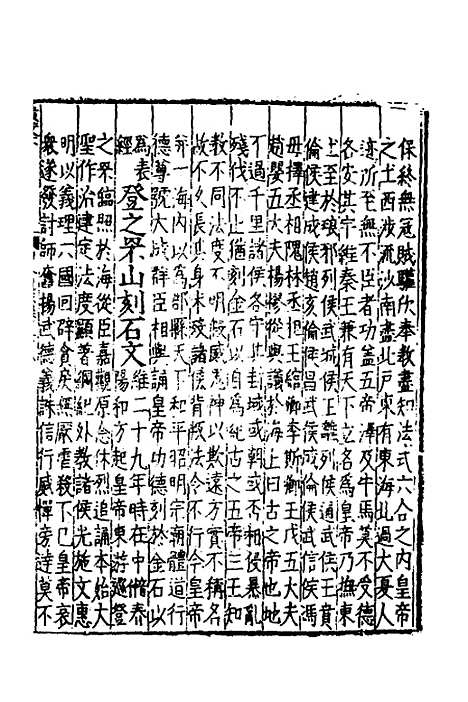 保終無寇賊驩欣奉教盡知法式六合之内皇帝
之土西涉流沙南盡北戶東有東海北過大夏人
迹所至無不臣者功蓋五帝澤及牛馬莫不受德
各安其宇維秦王兼有天下立名為皇帝乃撫東
土至於琅邪列侯武城侯王離列侯通武侯王賁
倫侯建成侯趙亥倫侯昌武侯成倫侯武信侯馮
毋擇丞相隗林丞相王綰卿李斯卿王戊五大夫
趙嬰五大夫楊樛從與議於海上曰古之帝也地
不過千里諸侯各守其封域或朝或否相侵暴亂
殘伐不止猶刻金石以自為紀古之五帝三王知
教不同法度不明假威鬼神以欺遠方實不稱名
故不久長其身未歿諸侯背叛法令不行今皇帝
并一海内以為郡縣天下和平昭明宗廟體道行
德尊號大成群臣相與誦皇帝功德刻於金石以
為表
經 登之罘山刻石文 維二十九年時在中春
陽和方起皇帝東游巡登
之罘臨照於海從臣嘉觀原念休烈追誦本始大
聖作治建定法度顯著綱紀外教諸侯光施文惠
明以義理六國回辟貪戾無厭虐殺不已皇帝哀
衆遂發討師奮揚武德義誅信行威燀旁達莫不